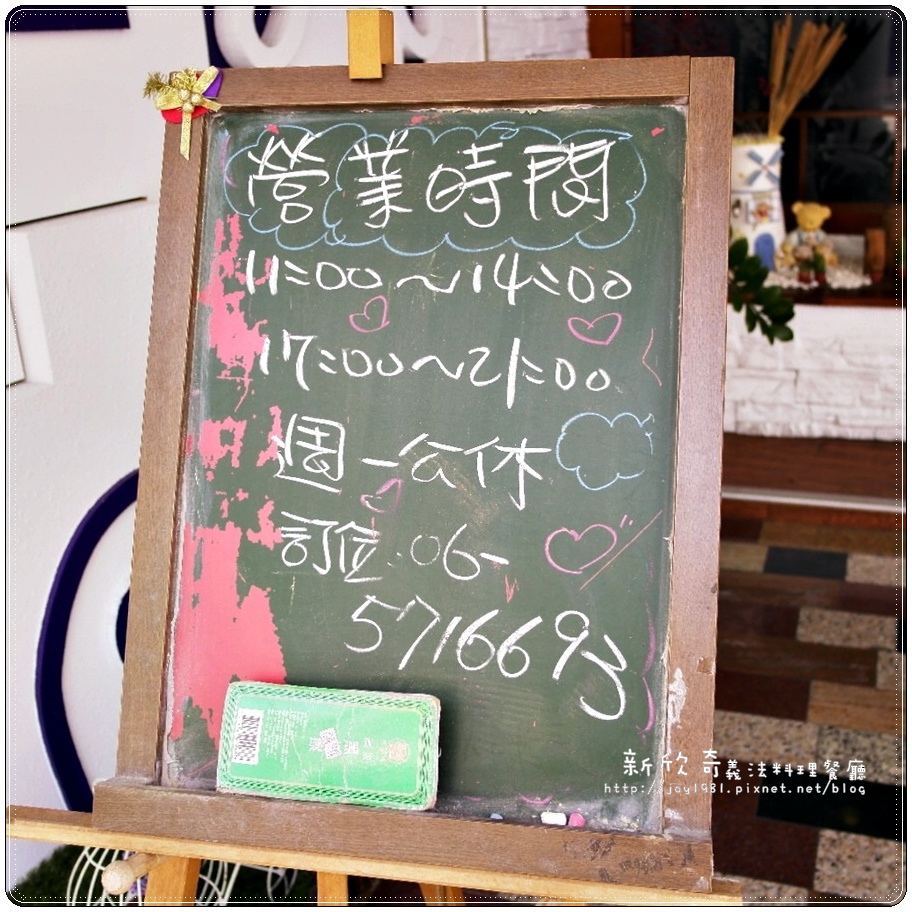 營業時間
11:00～14:00
17:00～21:00
週一公休
訂位:06-
5716693
新欣奇義法料理餐廳
http://jay1981.pixnet.net/blog